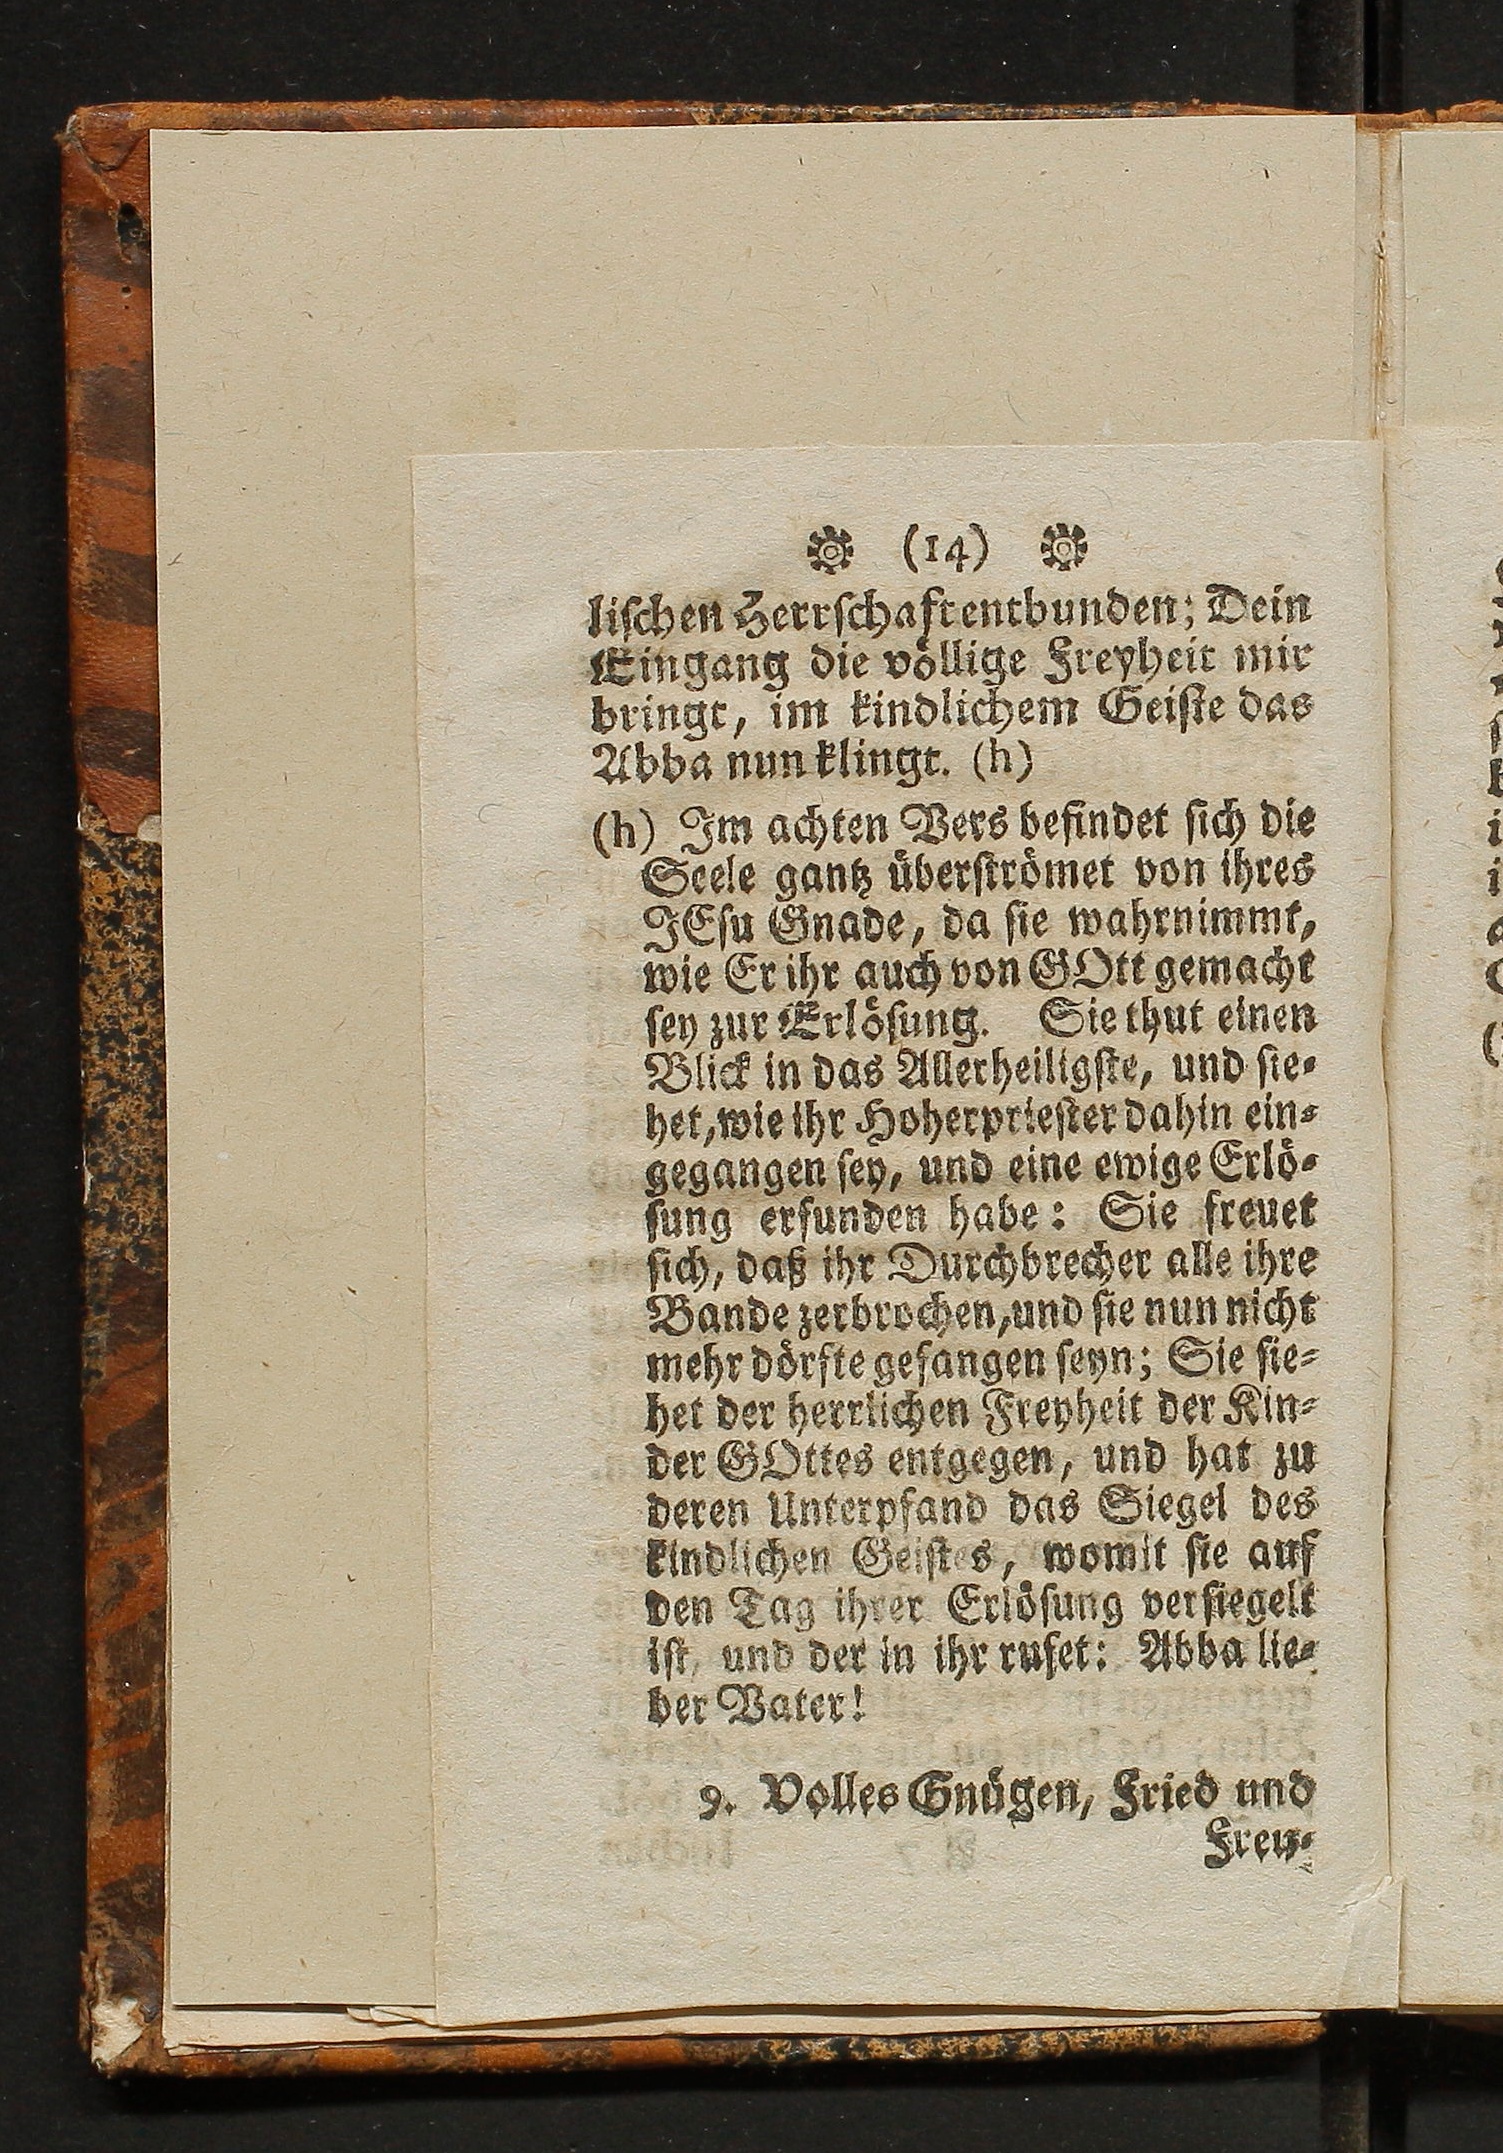 (14)
lischen Herrschaft entbunden; Dein
Eingang die völlige Freyheit mir
bringt, im kindlichem Geiste das
Abba nun klingt. (h)
(h) Im achten Vers befindet sich die
Seele gantz überströmet von ihres
JEsu Gnade, da sie wahrnimmt,
wie Er ihr auch von GOtt gemacht
sey zur Erlösung. Sie thut einen
Blick in das Allerheiligste, und sie-
het, wie ihr Hoherpriester dahin ein-
gegangen sey, und eine ewige Erlö-
sung erfunden habe: Sie freuet
sich, daß ihr Durchbrecher alle ihre
Bande zerbrochen, und sie nun nicht
mehr dörfte gefangen seyn; Sie sie-
het der herrlichen Freyheit der Kin-
der GOttes entgegen, und hat zu
deren Unterpfand das Siegel des
kindlichen Geistes, womit sie auf
den Tag ihrer Erlösung versiegelt
ist, und der in ihr rufet: Abba lie-
ber Vater!
9. Volles Gnügen, Fried und
Freu-